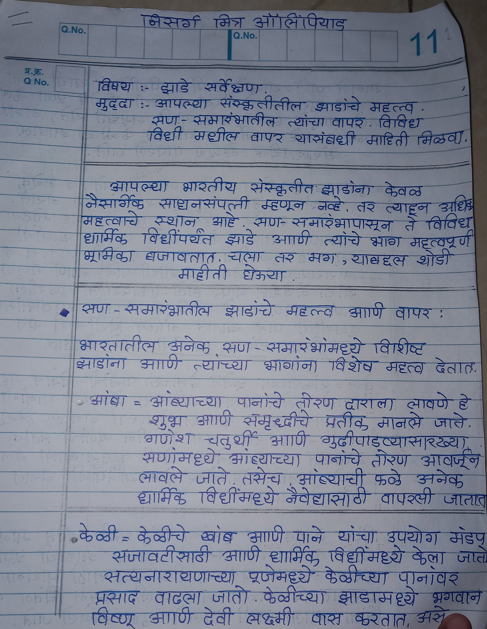 निसर्ग मित्र ऑलिंपियाड
Q.No. Q.No. 11
प्र.क्र.
Q No.
विषय :- झाडे सर्वेक्षण.
मुद्दा :- आपल्या संस्कृतीतील झाडांचे महत्व.
सण-समारंभातील त्यांचा वापर. विविध
विधी मधील वापर यासंबंधी माहिती मिळवा.
आपल्या भारतीय संस्कृतीत झाडांना केवळ
नैसर्गिक साधनसंपत्ती म्हणून नव्हे, तर त्याहून अधिक
महत्वाचे स्थान आहे. सण-समारंभापासून ते विविध
धार्मिक विधींपर्यंत झाडे आणि त्यांचे भाग महत्वपूर्ण
भूमिका बजावतात. चला तर मग, याबद्दल थोडी
माहीती घेऊया.
सण-समारंभातील झाडांचे महत्व आणि वापर :
भारतातील अनेक सण-समारंभांमध्ये विशिष्ट
झाडांना आणि त्यांच्या भागांना विशेष महत्व देतात.
आंबा = आंब्याच्या पानांचे तोरण दाराला लावणे हे
शुभ आणि समृद्धीचे प्रतीक मानले जाते.
गणेश चतुर्थी आणि गुढीपाडव्यासारख्या
सणांमध्ये आंब्याच्या पानांचे तोरण आवर्जून
लावले जाते. तसेच, आंब्याची फळे अनेक
धार्मिक विधींमध्ये नैवेद्यासाठी वापरली जातात
केळी = केळीचे खांब आणि पाने यांचा उपयोग मंडप
सजावटीसाठी आणि धार्मिक विधींमध्ये केला जातो
सत्यनारायणाच्या पूजेमध्ये केळीच्या पानावर
प्रसाद वाढला जातो. केळीच्या झाडामध्ये भगवान
विष्णू आणि देवी लक्ष्मी वास करतात, असे